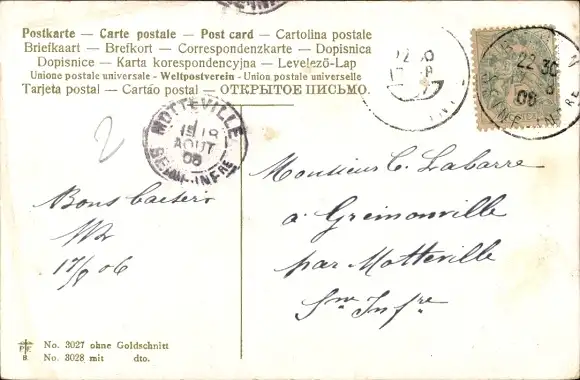 Postkarte — Carte postale — Post card — Cartolina postale
Briefkaart — Brefkort — Correspondenzkarte — Dopisnica
Dopisnice — Karta korespondencyjna — Levelező-Lap
Unione postale universale - Weltpostverein - Union postale universelle
Tarjeta postal — Cartão postal — ОТКРЫТОЕ ПИСЬМО.
2
MOTTEVILLE
18
AOUT
06
SEINE-INFRE
22 30
8
06
Monsieur C. Labarre
à Greimonville
par Motteville
Sne Infre
Bons baisers
17/8 06
No. 3027 ohne Goldschnitt
No. 3028 mit dto.